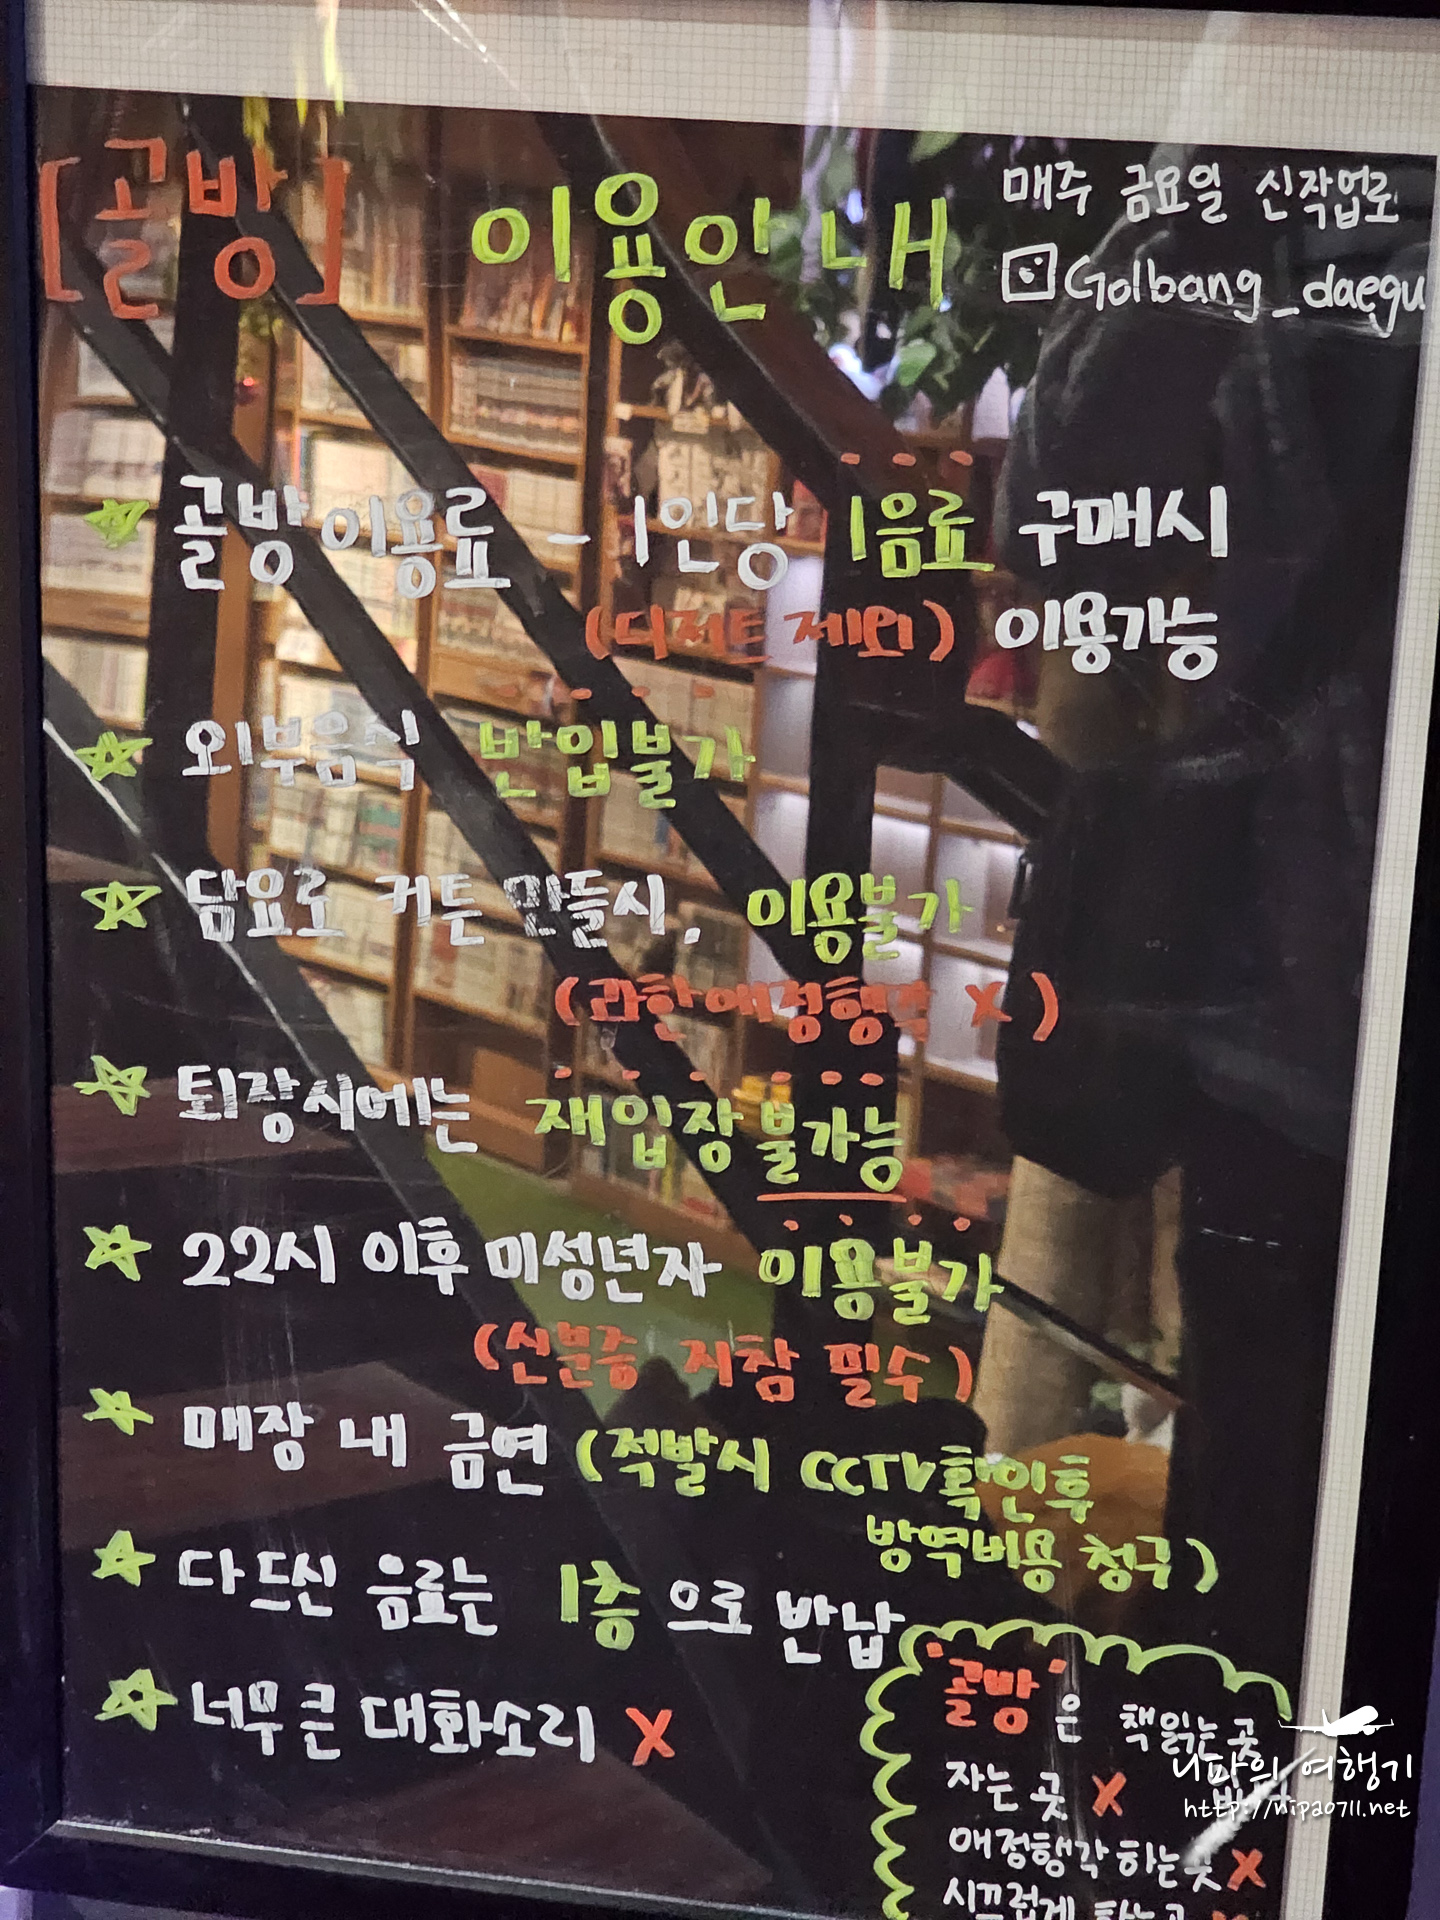 [골방] 이용안내
매주 금요일 신작업로
Golbang_daegu
골방이용료 - 1인당 1음료 구매시
(디저트 제외) 이용가능
외부음식 반입불가
담요로 커튼 만들시, 이용불가
(과한애정행각 X)
퇴장시에는 재입장불가능
22시 이후 미성년자 이용불가
(신분증 지참 필수)
매장 내 금연 (적발시 CCTV확인후
방역비용 청구)
다 드신 음료는 1층으로 반납
너무 큰 대화소리 X
"골방"은 책읽는곳
자는 곳 X
애정행각 하는곳 X
시끄럽게 하는곳
니파의 여행기
http://nipa0711.net